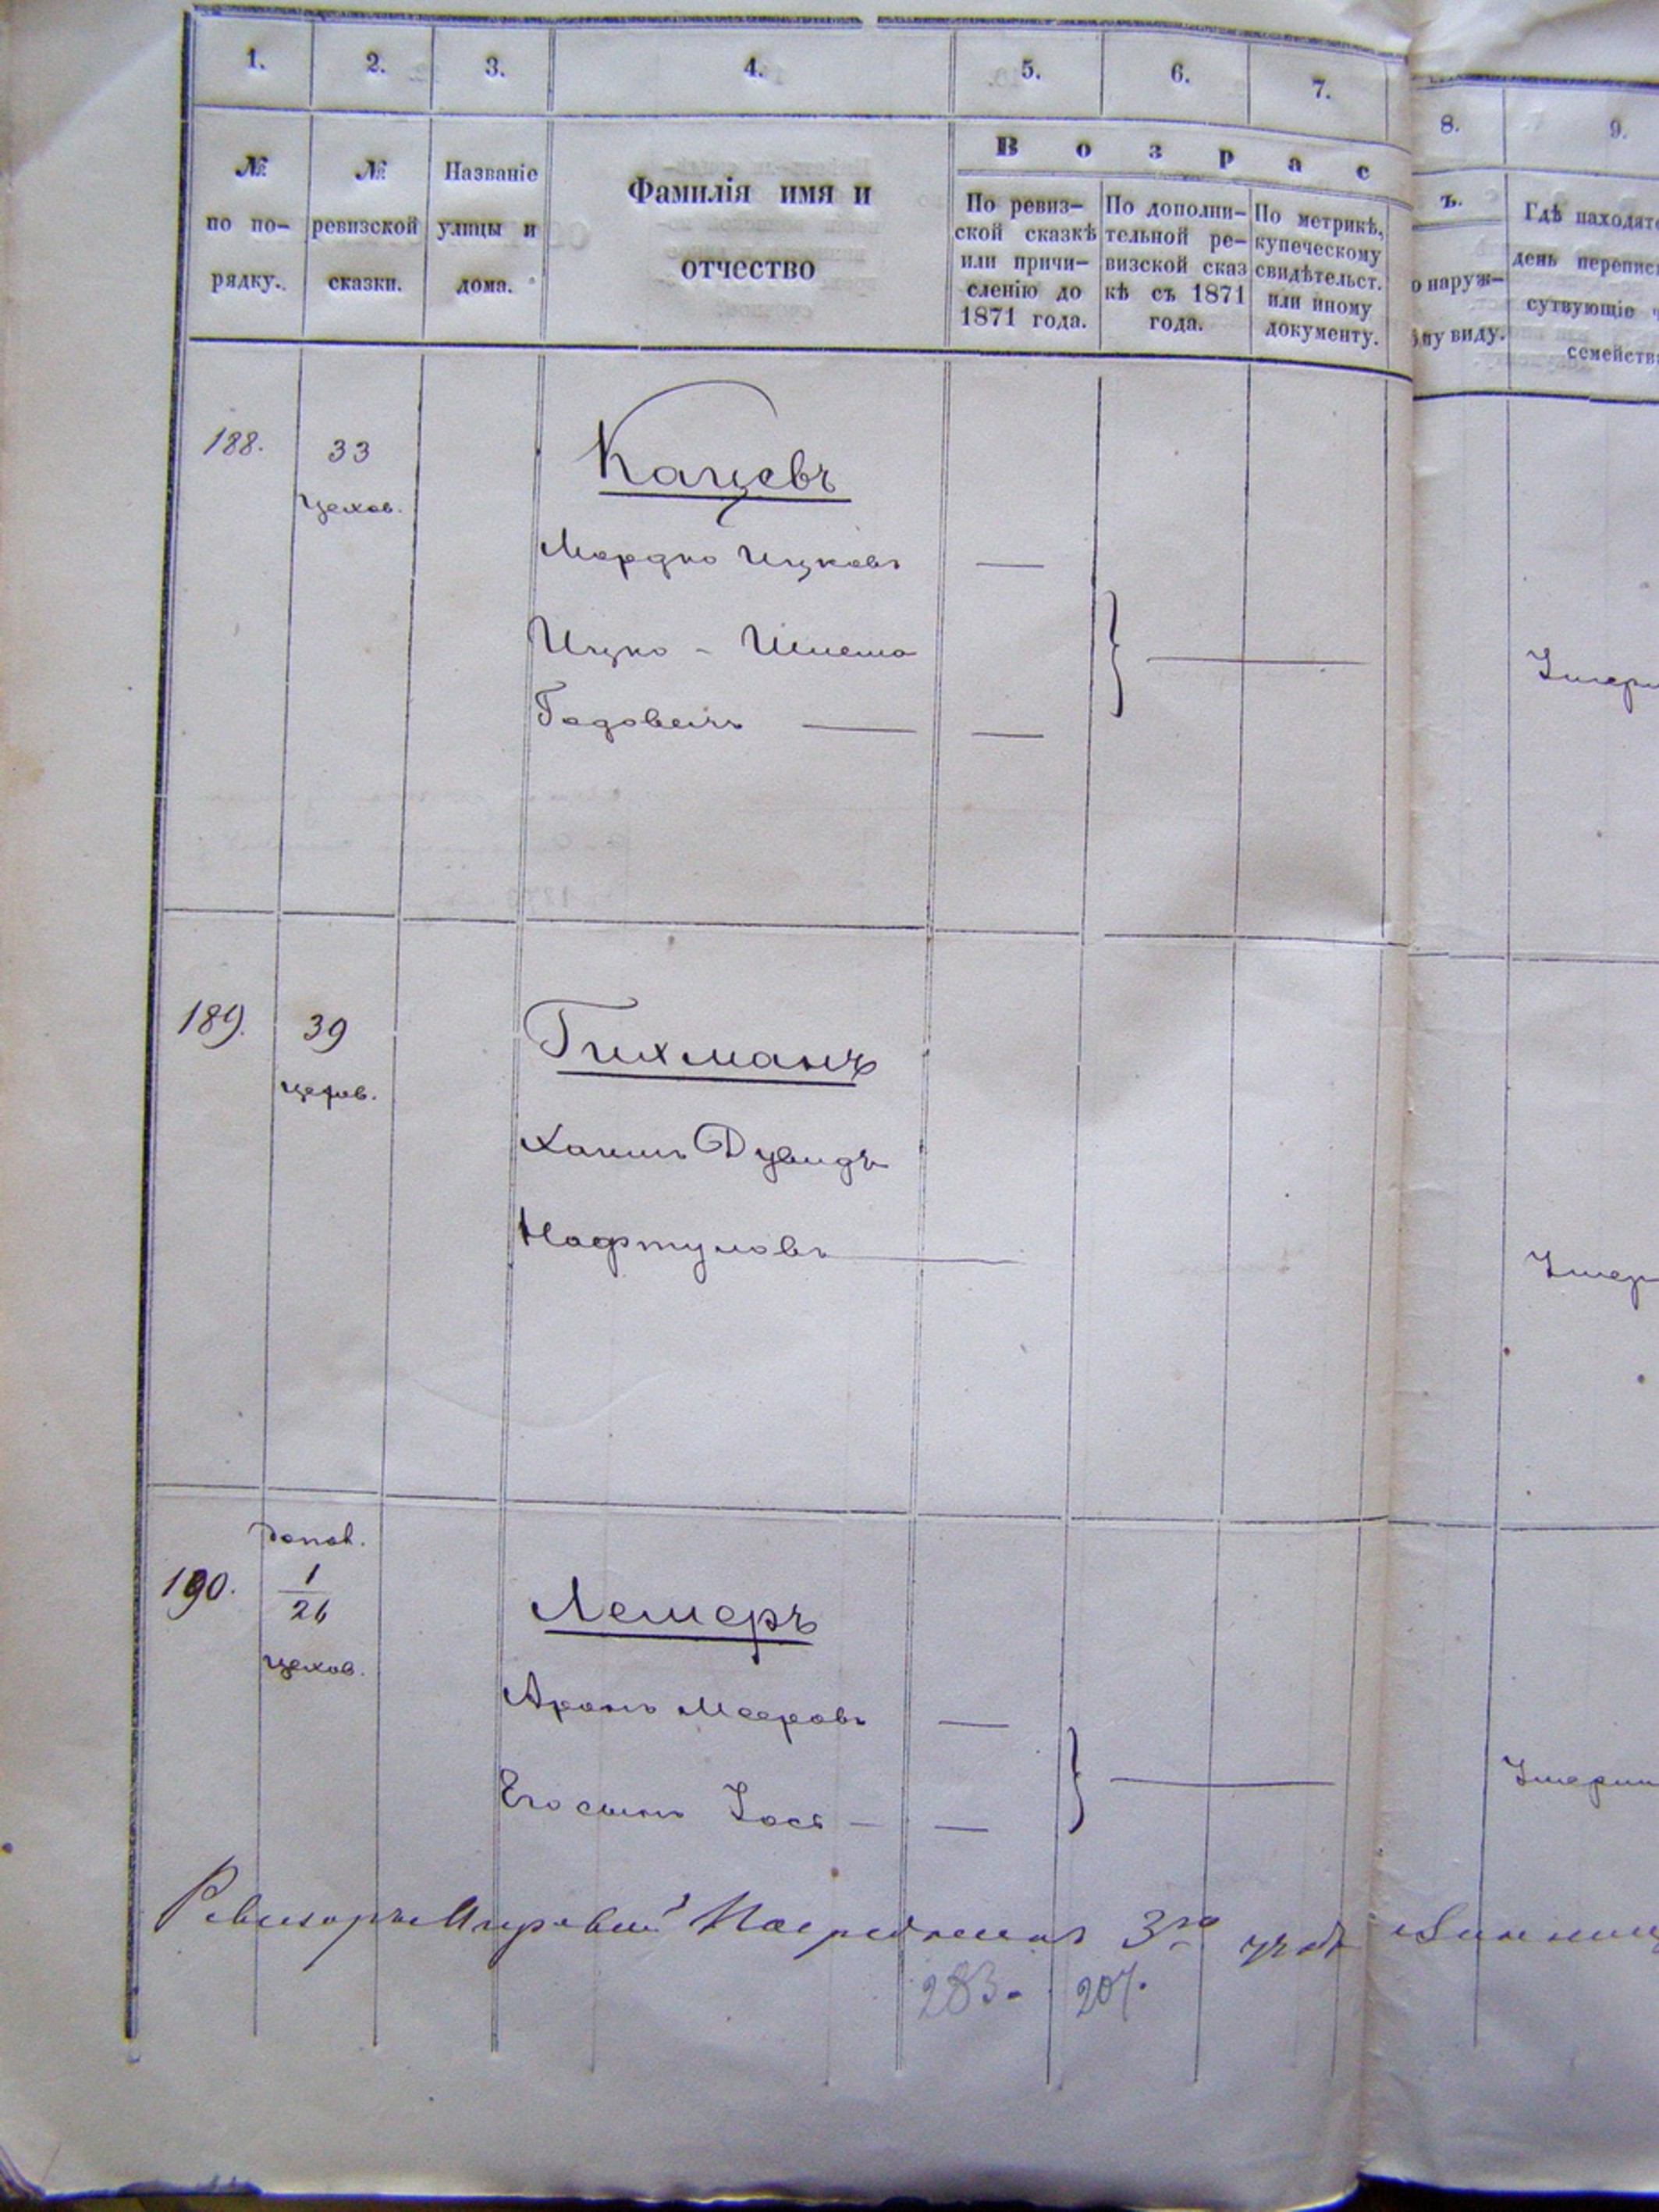 1. 2. 3. 4. 5. 6. 7. 8. 9.
№ по по-рядку.
№ ревизской сказки.
Названіе улицы и дома.
Фамилія имя и
отчество
В о з р а с
ъ.
По ревиз-
ской сказкѣ
или причи-
сленію до
1871 года.
По дополни-
тельной ре-
визской сказ
кѣ съ 1871
года.
По метрикѣ,
купеческому
свидѣтельст.
или иному
документу.
о наруж-
ну виду.
Гдѣ находятс
день переписи
сутвующіе ч
семейств
188. 33 Кацевъ
Цехов.
Мордко Ицковъ —
Ицко - Шлема
— —
Умер
189. 39 Гихманъ
цехов.
Хаимъ Дувидъ
Нафтуловъ —
Умер
Допол.
190. 1/26 Лемеръ
цехов.
Аронъ Мееровъ —
Его сынъ Іосъ — —
Умерли
Ревизоръ Мировой Посредникъ 3го уч
283. 207.